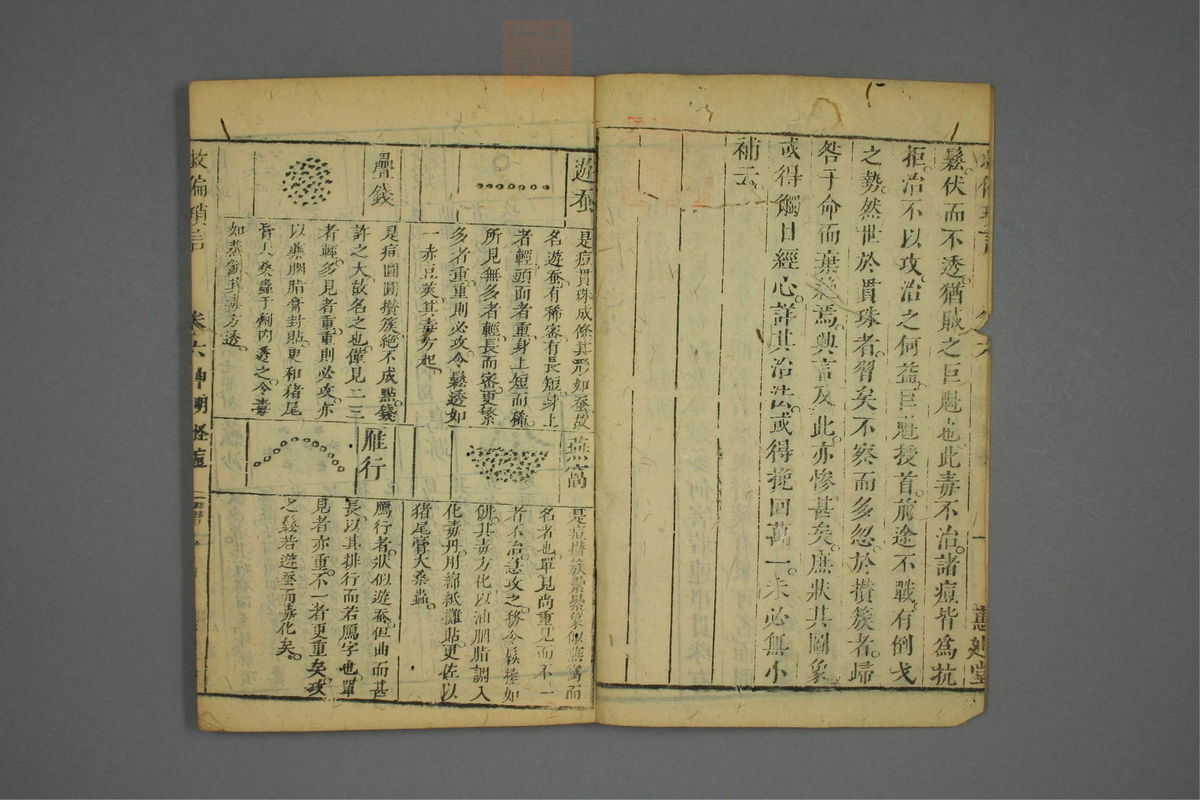 鬆伏而不透猶賊之巨魁也此毒不治諸痘皆為抗
拒治不以攻治之何益巨魁授首前途不戰有倒戈
之勢然世於貫珠者習矣不察而多忽於攢簇者歸
咎于命而棄絕焉興言及此亦慘甚矣庶狀其圖象
或得觸目經心詳其治法或得挽回萬一未必無小
補云
遊蚕
是痘貫珠成條其形如蚕故
名遊蚕有稀密有長短身上
者輕頭面者重身上短而稀
所見無多者輕長而密更繁
多者重重則必攻令鬆透如
一赤豆莢其毒方起
疊錢
是痘圓圓攢簇絕不成點錢
許之大故名之也僅見二三
者輕多見者重重則必攻亦
以藥胭脂膏封貼更和猪尾
膏大桑蟲于劑內透之令毒
如蒸餅其毒方透
燕窩
是痘攢簇纍纍象似燕窩而
名者也單見尚重見而不一
者不治急攻之務令鬆極如
餅其毒方化以油胭脂調入
化毒丹用綿紙攤貼更佐以
猪尾膏大桑蟲
雁行
鴈行者狀似遊蚕但曲而甚
長以其排行而若鴈字也單
見者亦重不一者更重矣攻
之鬆若遊蚕而毒化矣
救偏瑣言 卷六神明怪痘